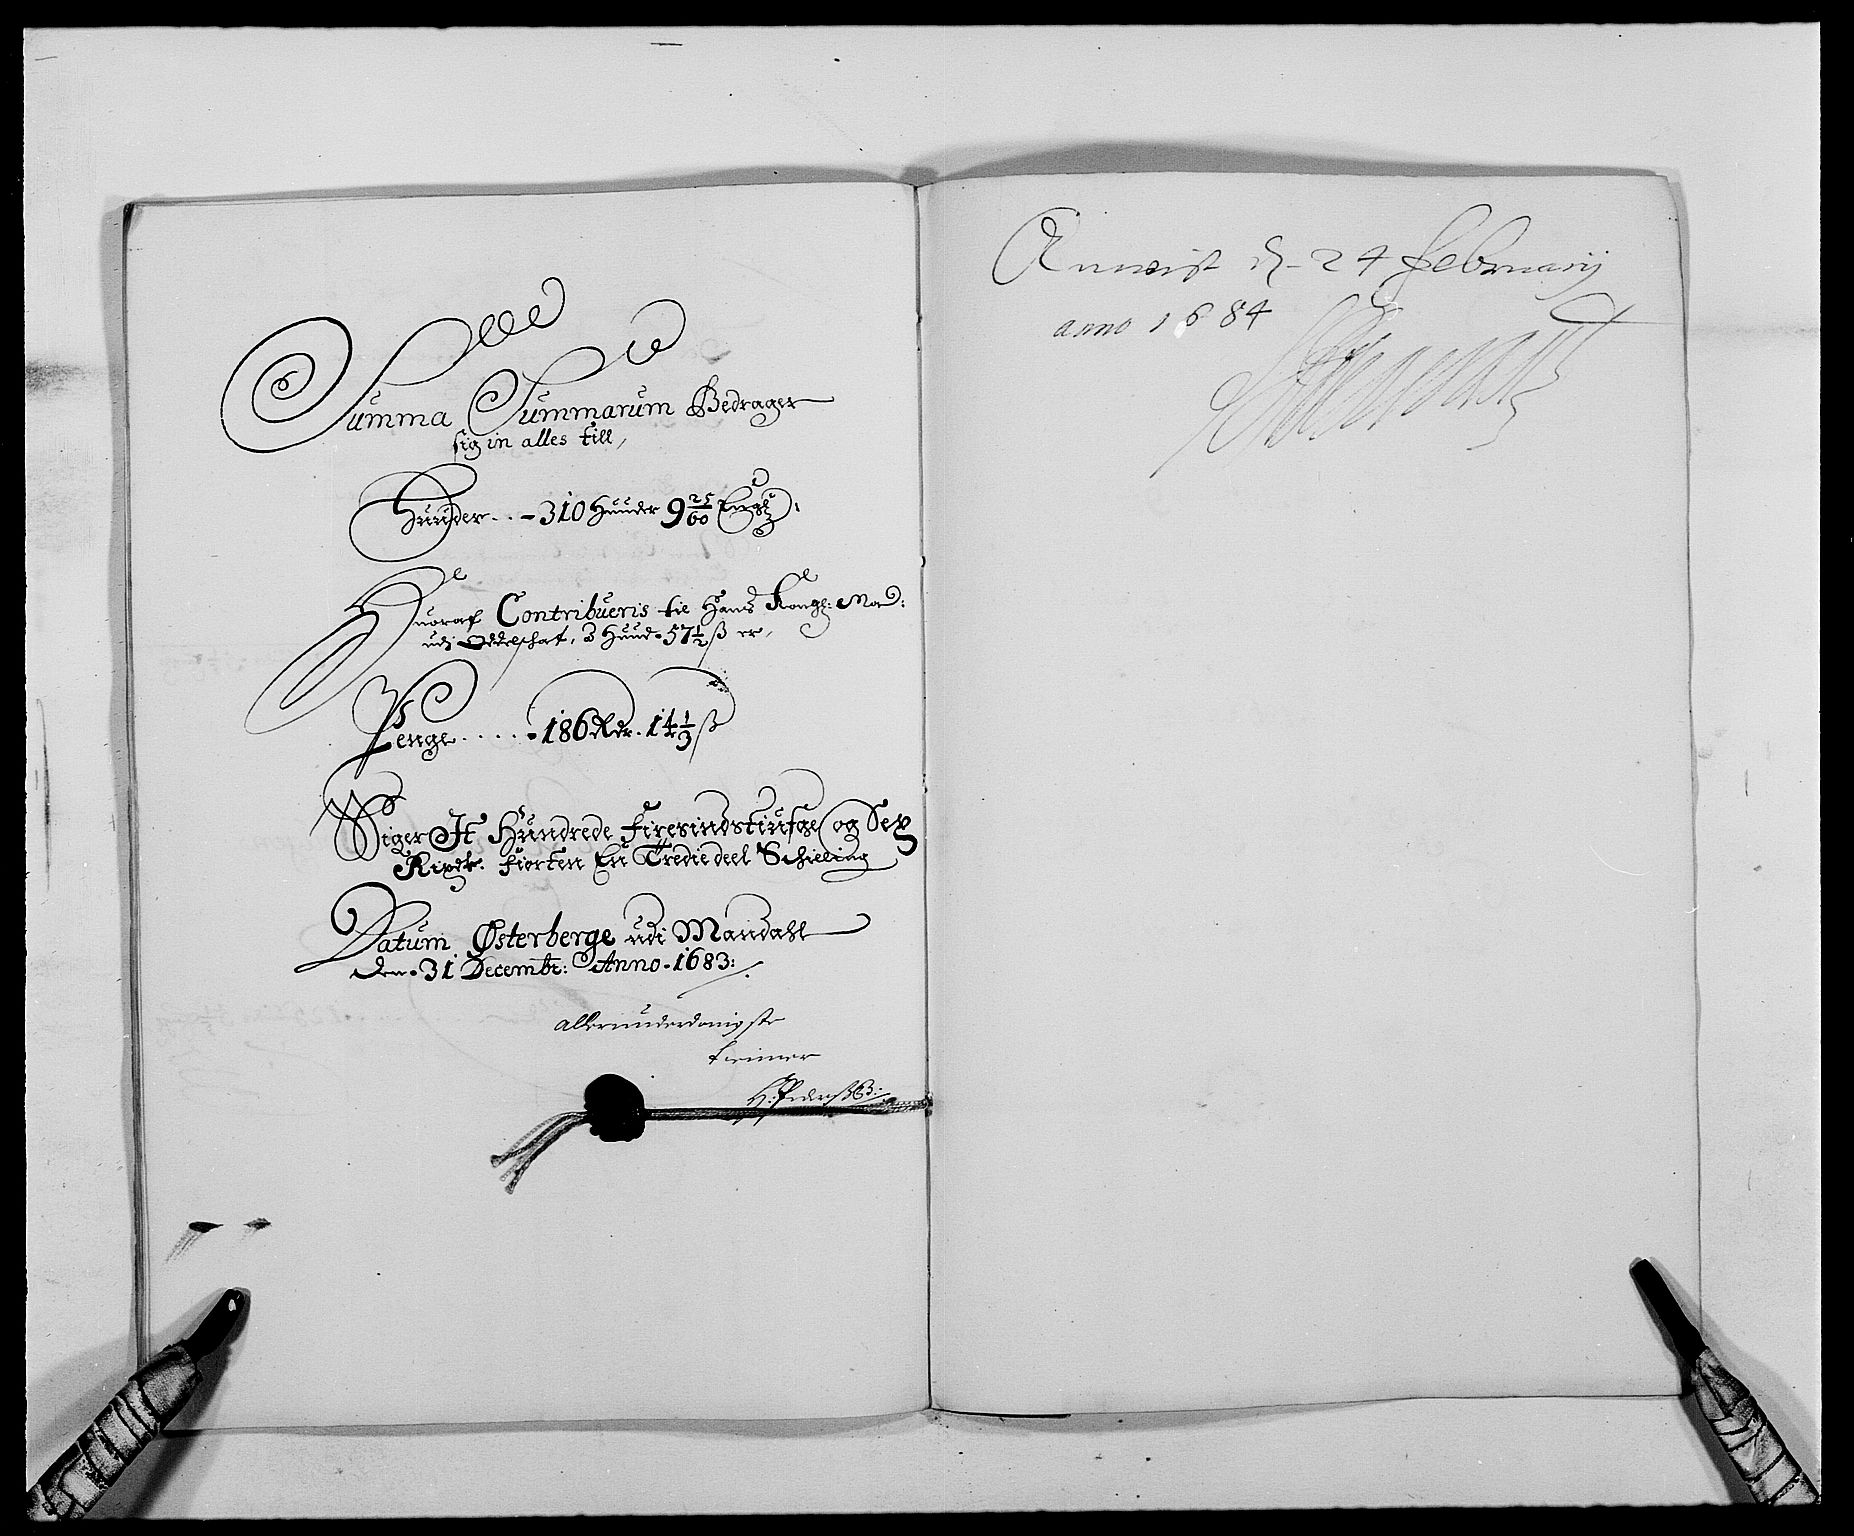 Summa Summarum Bedrager
sig in alles till,
Huuder. . . - 310 Huuder 9 25/60 Engl:
Huoraf Contribueris til Hans Kongl: May:
udj Oddelschat, 3 Huud. 57½ ß er,
Penge . . . . . - 186 Rdr. 14⅓ ß
Siger It Hundrede firesindstiufge og Sex
Rixdr. fiorten En Trediedeel Schieling
Datum Østerberge udi Mandahl
den. 31 Decembr: Anno. 1683:
allerunderdanigste
tienner
H: Pederß:
Anwist d. 24 februarij
anno 1684